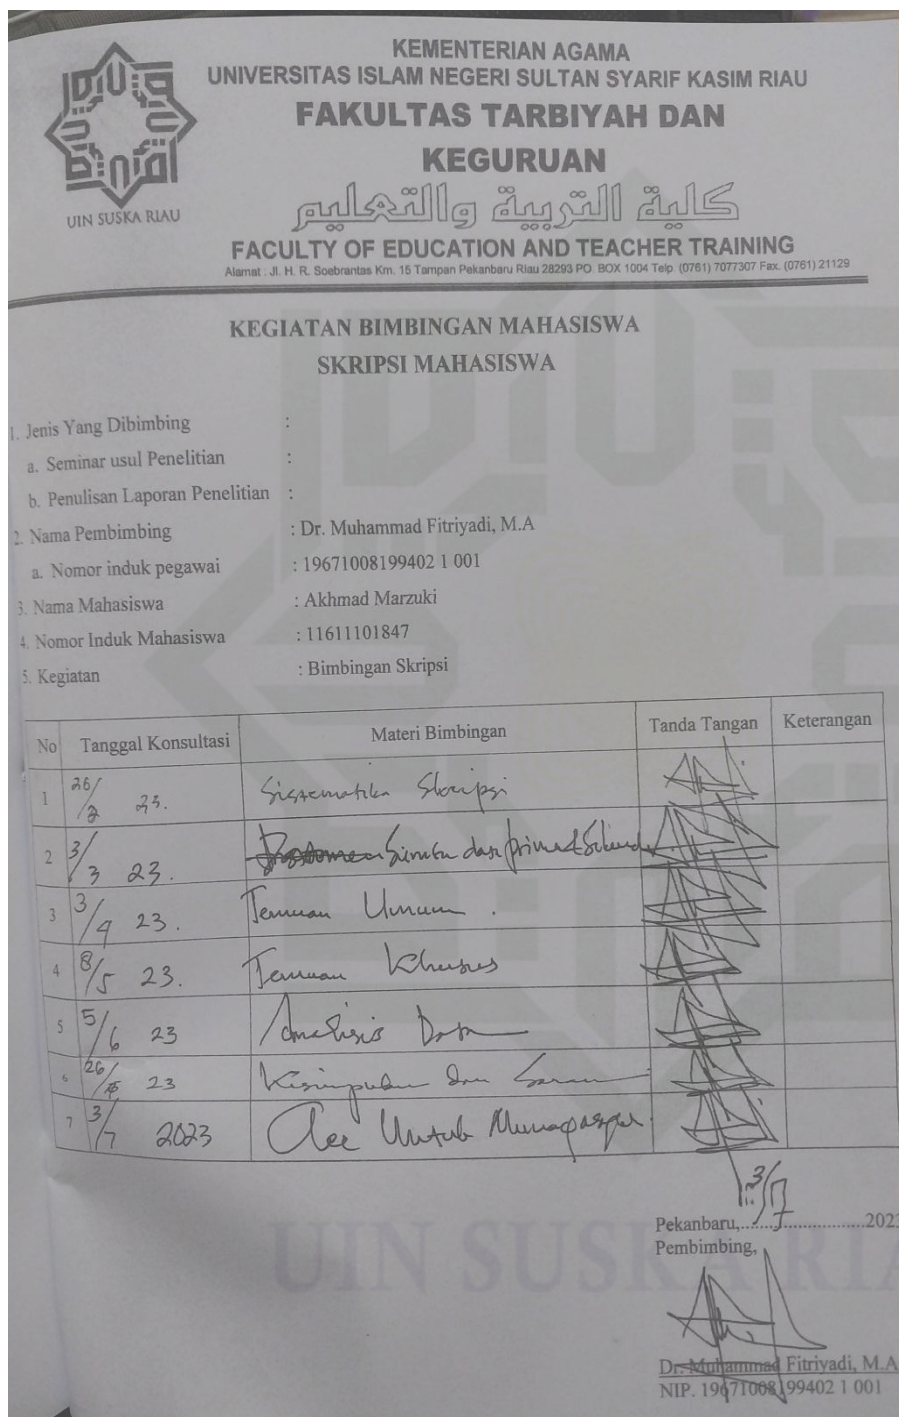 KEMENTERIAN AGAMA
UNIVERSITAS ISLAM NEGERI SULTAN SYARIF KASIM RIAU
FAKULTAS TARBIYAH DAN
KEGURUAN
كلية التربية والتعليم
UIN SUSKA RIAU
FACULTY OF EDUCATION AND TEACHER TRAINING
Alamat : Jl. H. R. Soebrantas Km. 15 Tampan Pekanbaru Riau 28293 PO. BOX 1004 Telp. (0761) 7077307 Fax. (0761) 21129
KEGIATAN BIMBINGAN MAHASISWA
SKRIPSI MAHASISWA
1. Jenis Yang Dibimbing :
a. Seminar usul Penelitian :
b. Penulisan Laporan Penelitian :
2. Nama Pembimbing : Dr. Muhammad Fitriyadi, M.A
a. Nomor induk pegawai : 19671008199402 1 001
3. Nama Mahasiswa : Akhmad Marzuki
4. Nomor Induk Mahasiswa : 11611101847
5. Kegiatan : Bimbingan Skripsi
No Tanggal Konsultasi Materi Bimbingan Tanda Tangan Keterangan
1 26/2 23. Sistematika Skripsi
2 3/3 23. dan
3 3/4 23. Temuan Umum .
4 8/5 23. Temuan Khusus
5 5/6 23 Analisis Data
6 26/ 23 Kesimpulan dan Saran
7 3/7 2023 Acc Untuk Munaqasyah.
Pekanbaru, 3/7 2023
Pembimbing,
Dr. Muhammad Fitriyadi, M.A
NIP. 19671008199402 1 001
UIN SUSKA RIA